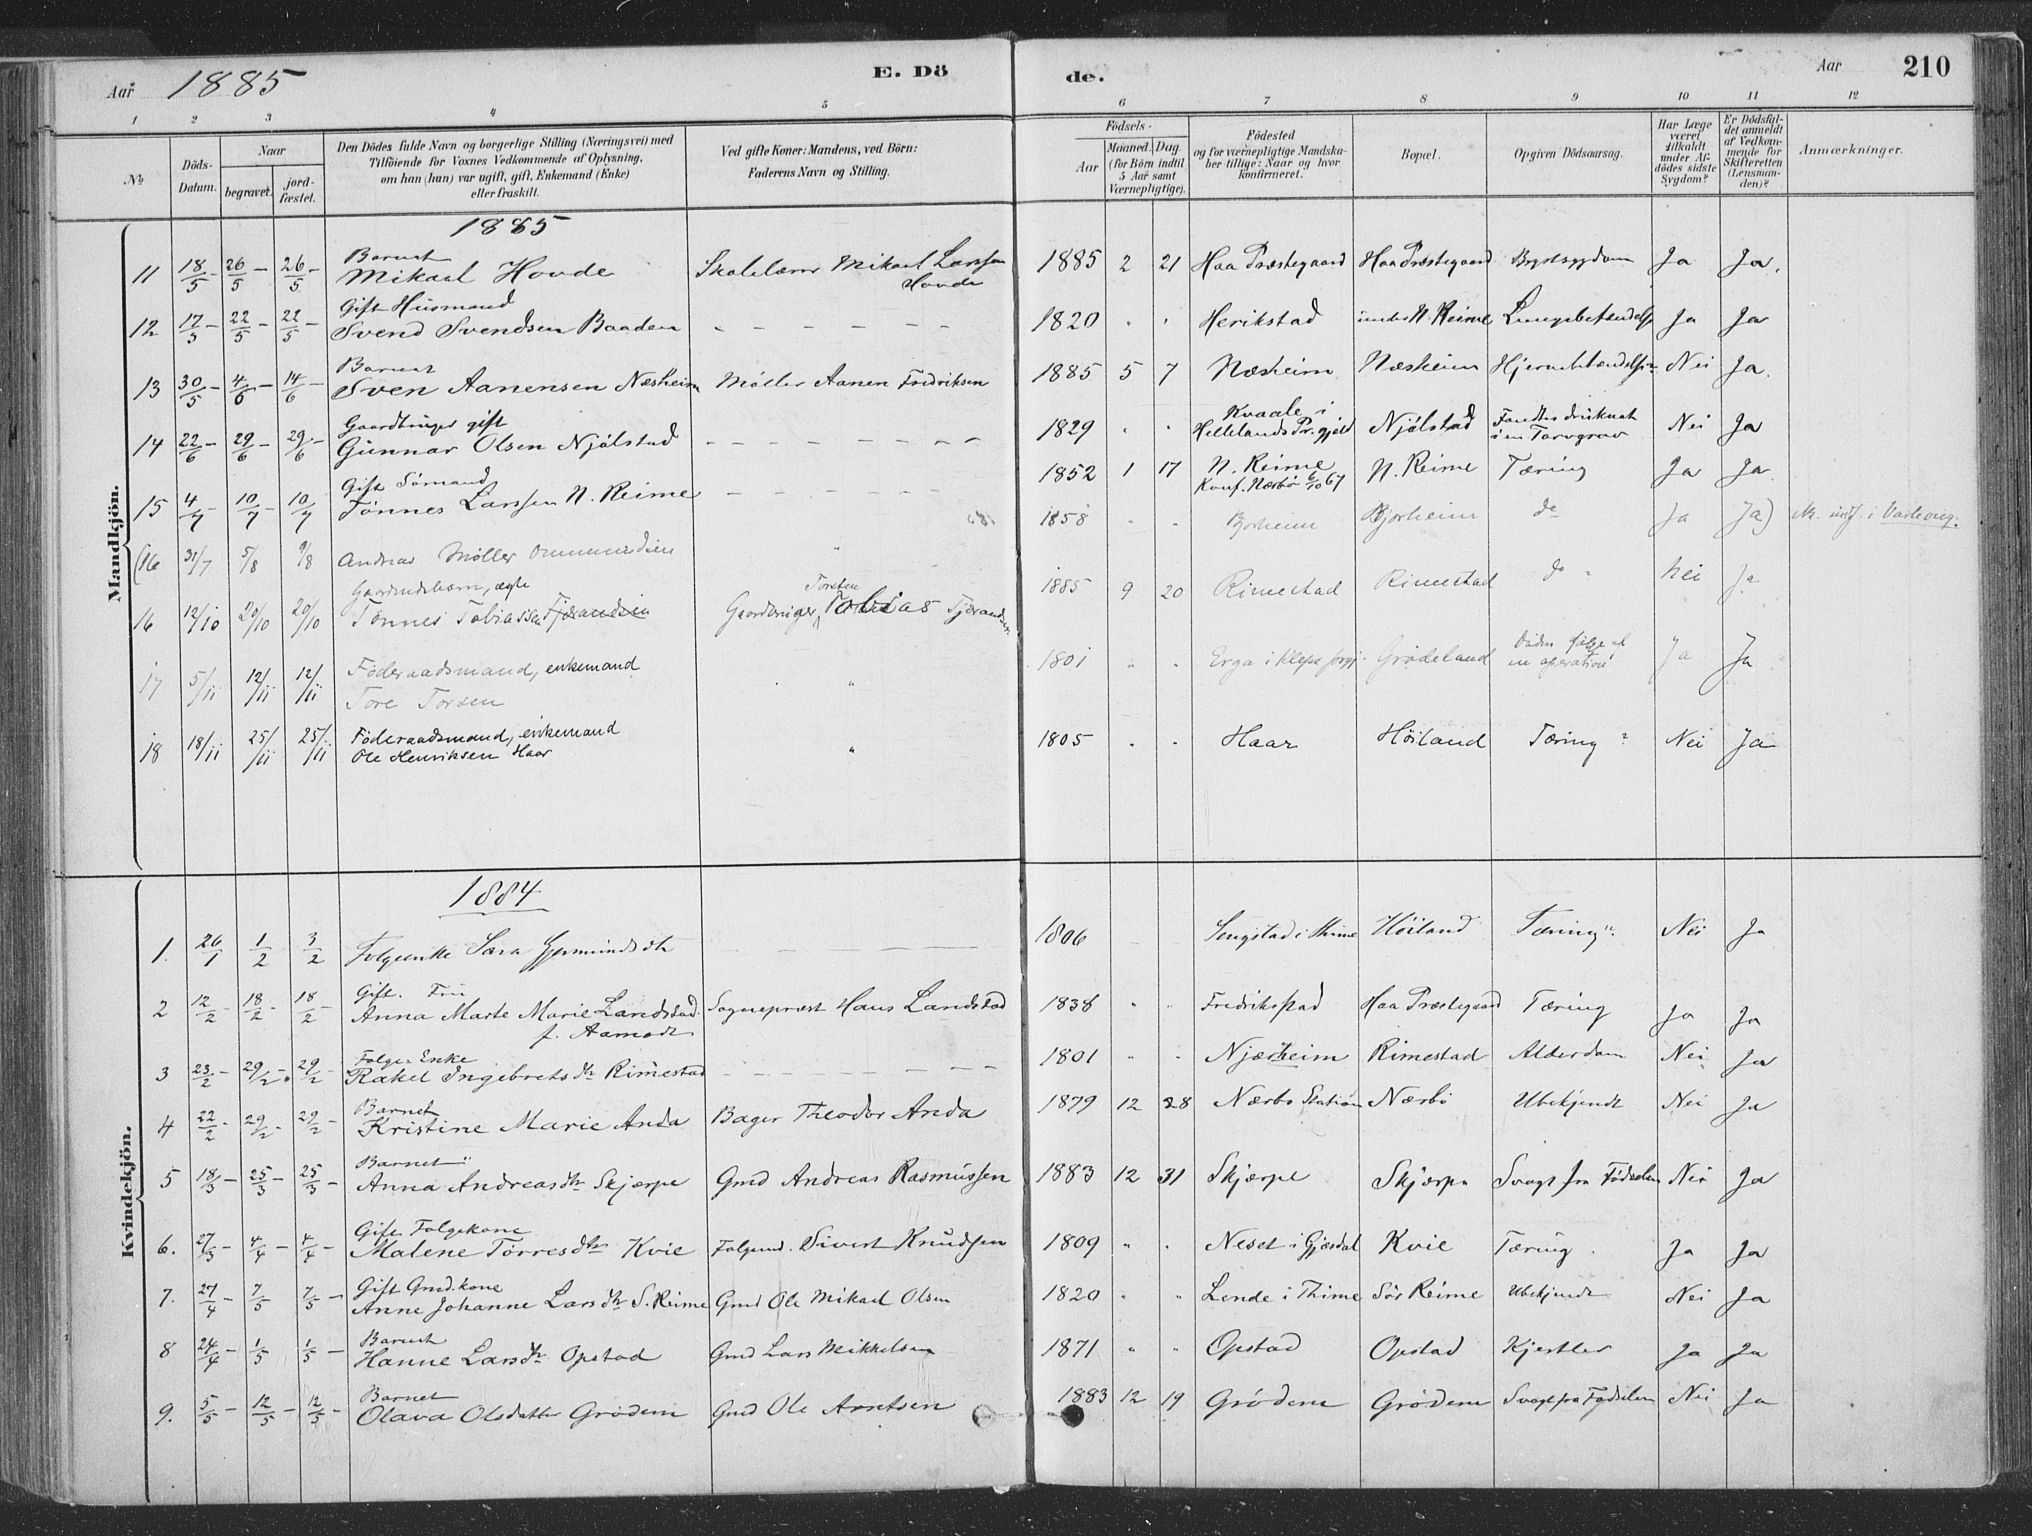 Aar 1885
E. Dö
de.
Aar
210
1 2 3 4 5 6 7 8 9 10 11 12
No
Döds-
Datum.
Naar
begravet.
jord-
fæstet.
Den Dödes fulde Navn og borgerlige Stilling (Næringsvei) med
Tilföiende for Voxnes Vedkommende af Oplysning,
om han (hun) var ugift, gift, Enkemand (Enke)
eller fraskilt.
Ved gifte Koner: Mandens, ved Börn:
Faderens Navn og Stilling.
Födsels-
Aar
Maaned. Dag.
(for Börn indtil
5 Aar samt
Værnepligtige).
Födested
og for værnepligtige Mandska-
ber tillige: Naar og hvor
konfirmeret.
Bopæl.
Opgiven Dödsaarsag.
Har Læge
været
tilkaldt
under Af-
dödes sidste
Sygdom?
Er Dödsfal-
det anmeldt
af Vedkom-
mende for
Skifteretten
(Lensman-
den)?
Anmærkninger.
Mandkjön.
1885
Barnet
11 18/5 - 26/5 - 26/5 - Mikael Hovde Skolelærer Mikael Larssen Hovde 1885 2 21 Haa Præstegaard Haa Præstegaard Brystsygdom Ja Ja.
Gift Husmand
12 17/5 - 22/5 - 22/5 - Svend Svendsen Baaden - - - - - - 1820 " " Herikstad under N. Reime Lungebetændelse Ja Ja
Barnet
13 30/5 - 4/6 - 14/6 - Sven Aanensen Næsheim Møller Aanen Fredriksen 1885 5 7 Næsheim Næsheim Hjernebetændelse Nei Ja.
Gaardbruger gift
14 22/6 - 29/6 - 29/6 - Gunnar Olsen Njølstad - - - - - - - - 1829 " " Kvaale i Hellelands Pr.gjeld Njølstad Fandtes druknet i en Torvgrav Nei Ja
Gift Sømand
15 4/7 - 10/7 - 10/7 Tønnes Larssen N. Reime - - - - - - 1852 1 17 N. Reime Konf. Nærbø 6/10 67 N. Reime Tæring Ja Ja
(16 31/7 5/8 9/8 Andreas Møller Ommundsen " 1858 " " Bjorheim Bjorheim do Ja Ja) indf. i Varhoug.
Gaardmdsbarn, ægte
16 12/10 20/10 20/10 Tønnes Tobiassen Tjerandsen Gaardbruger, Torsten Tobias Tjerandsen 1885 9 20 Rimestad Rimestad do " Nei Ja
Föderaadsmand, enkemand
17 5/11 12/11 12/11 Tore Torsen " 1801 " " Erga i Klepe sogn Grødeland Døden følge af en operation Ja Ja
Föderaadsmand, enkemand
18 18/11 25/11 25/11 Ole Henriksen Haar " 1805 " " Haar Höiland Tæring ? Nei Ja
Kvindekjön.
1884
1. 26/1 1/2 3/2 Folgeenke Sara Gjermunds dtr - - - 1806 i Thime Höiland Tæring Nei Ja
Gift. Fru
2 12/2 - 18/2 - 18/2 - Anna Marte Marie Landstad f. Aamodt Sognepræst Hans Landstad 1838 " " Fredrikstad Haa Præstegaard Tæring Ja Ja
Folge-Enke
3 23/2 - 29/2 - 29/2 - Rakel Ingebrets dtr Rimestad - - - - - - - - 1801 " " Njærheim Rimestad Alderdom Nei Ja
Barnet
4 22/2 - 29/2 - 29/2 - Kristine Marie Anda Bager Theodor Anda 1879 12 28 Nærbø Station Nærbö Ubekjendt Nei Ja
Barnet
5 18/3 - 25/3 - 25/3 - Anna Andreas dtr Skjærpe Gmd Andreas Rasmussen 1883 12 31 Skjærpe Skjærpe Svagt fra Fødselen Nei Ja
Gift Folgekone
6. 27/3 - 4/4 - 4/4 - Malene Tørres dtr Kvie Folgmd. Sivert Knudsen 1809 " " Neset i Gjæsdal Kvie Tæring. Ja Ja
Gift Gmd.kone
7. 27/4 - 7/5 7/5 - Anne Johanne Lars dtr S. Reime Gmd Ole Mikael Olsen 1820 " " Lende i Thime Sör Reime Ubekjendt Nei Ja
Barnet
8 24/4 - 1/5 1/5 - Hanne Lars dtr Opstad Gmd Lars Mikkelsen 1871 " " Opstad Opstad Kjertler Ja Ja
Barnet
9. 5/5 - 12/5 - 12/5 - Olava Olsdatter Grødem Gmd Ole Arntsen 1883 12 19 Grødem Grødem Svagt fra Fødselen Nei Ja